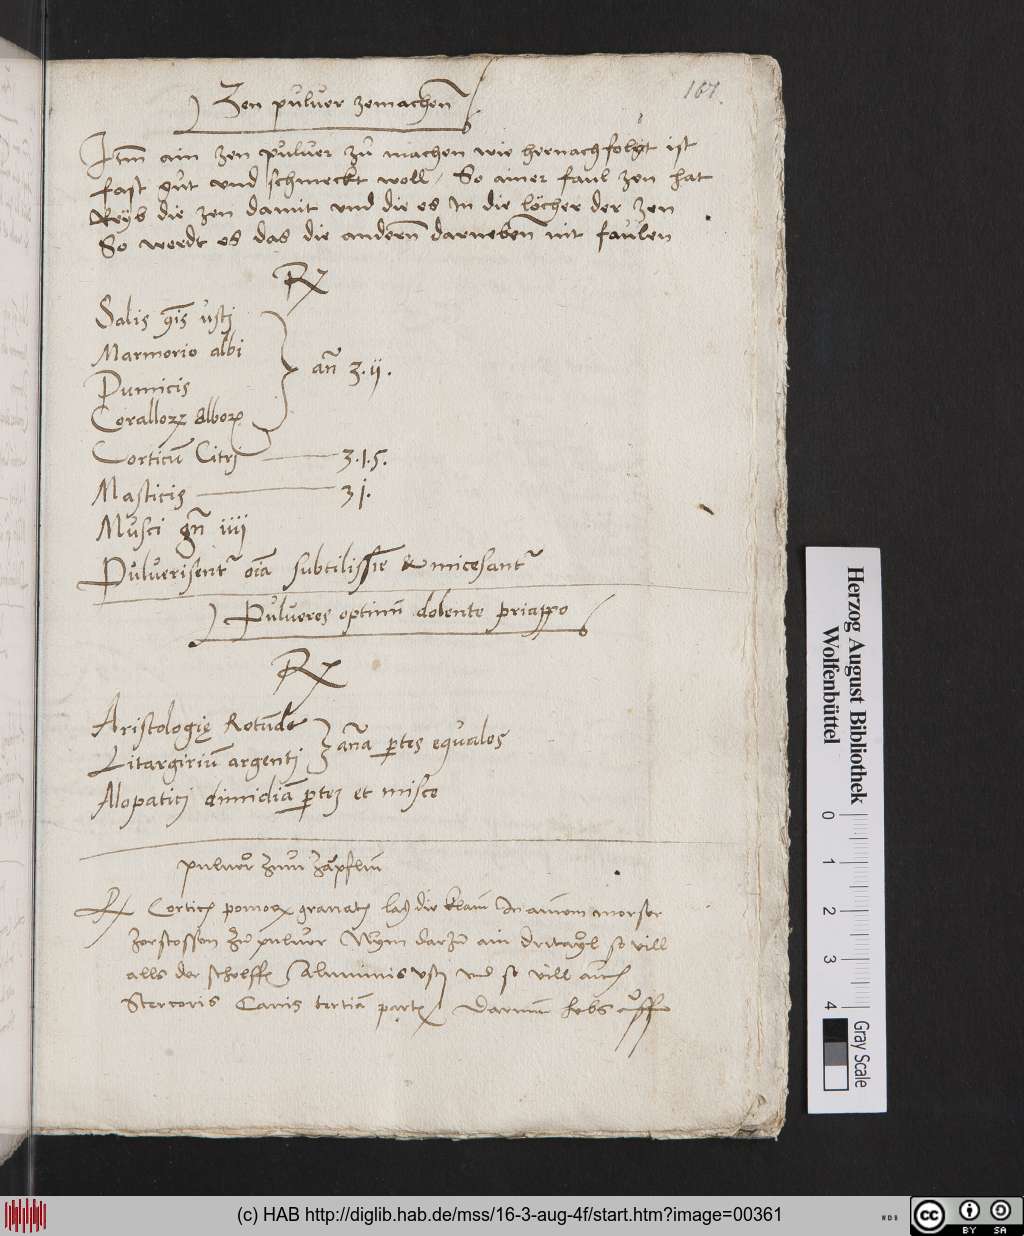 167.
Zen pulver zemachen
Itm ain zen pulver zu machen wie hernachfolgt ist
fast gut und schmeckt woll / So ainer faul zen hat
Reyb die zen damit und die es In die löcher der zen
So werdt es das die andern darneben nit faulen
Rx
Salis gis usti
Marmorio albi
Pumicis
Corallorz alborz
an̄ ʒ.ii.
Corticū Citri ʒ.1.5.
Masticis ʒi.
Musci gn̄ iiii
Pulverisentr oīa subtilissie & micesantr
Pulveres optimū dolente priappo
Rx
Aristologię Rotūde
Litargiriū argenti
ana ptes equales
Alopatici dimidiā ptez et misce
pulver zum zäpflin
Rx Cortic pomorz granati laß die klain In ainem morser
zerstossen zu pulver Nym darzu ain dritayl so vill
alls der schelffe Aluminis usti und so vill auch
Stercoris Canis tertiā parte darmi hebs auff
Herzog August Bibliothek
Wolfenbüttel
0 1 2 3 4
Gray Scale
(c) HAB http://diglib.hab.de/mss/16-3-aug-4f/start.htm?image=00361
WDB
cc BY SA